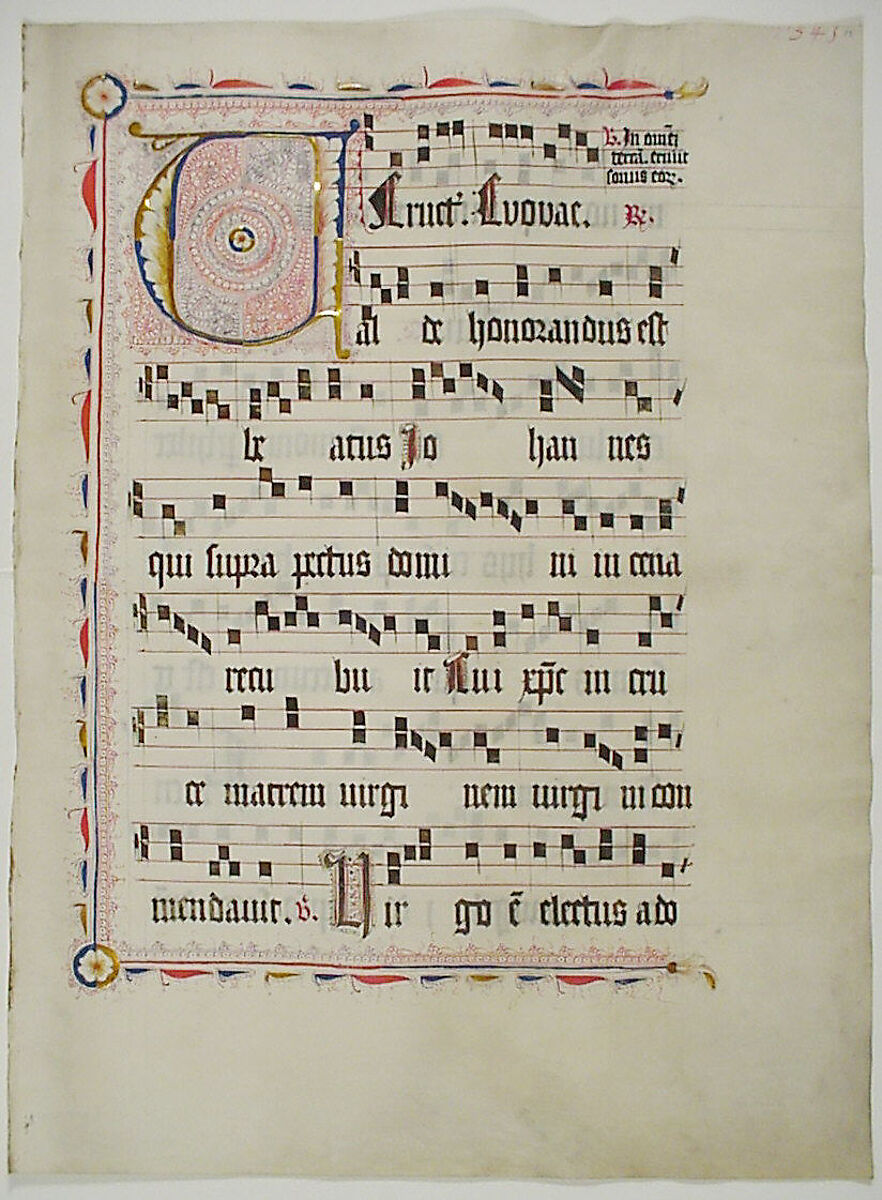 V. In om̄ē
terrā. exiuit
sonus eoꝝ.
fruct᾿. Euouae. R.
Val de honorandus est
be atus Jo han nes
qui supra pectus domi ni in cena
recu bu it Cui xp̄c in cru
ce matrem uirgi nem uirgi ni con
mendauit. V. Vir go ē electus a do